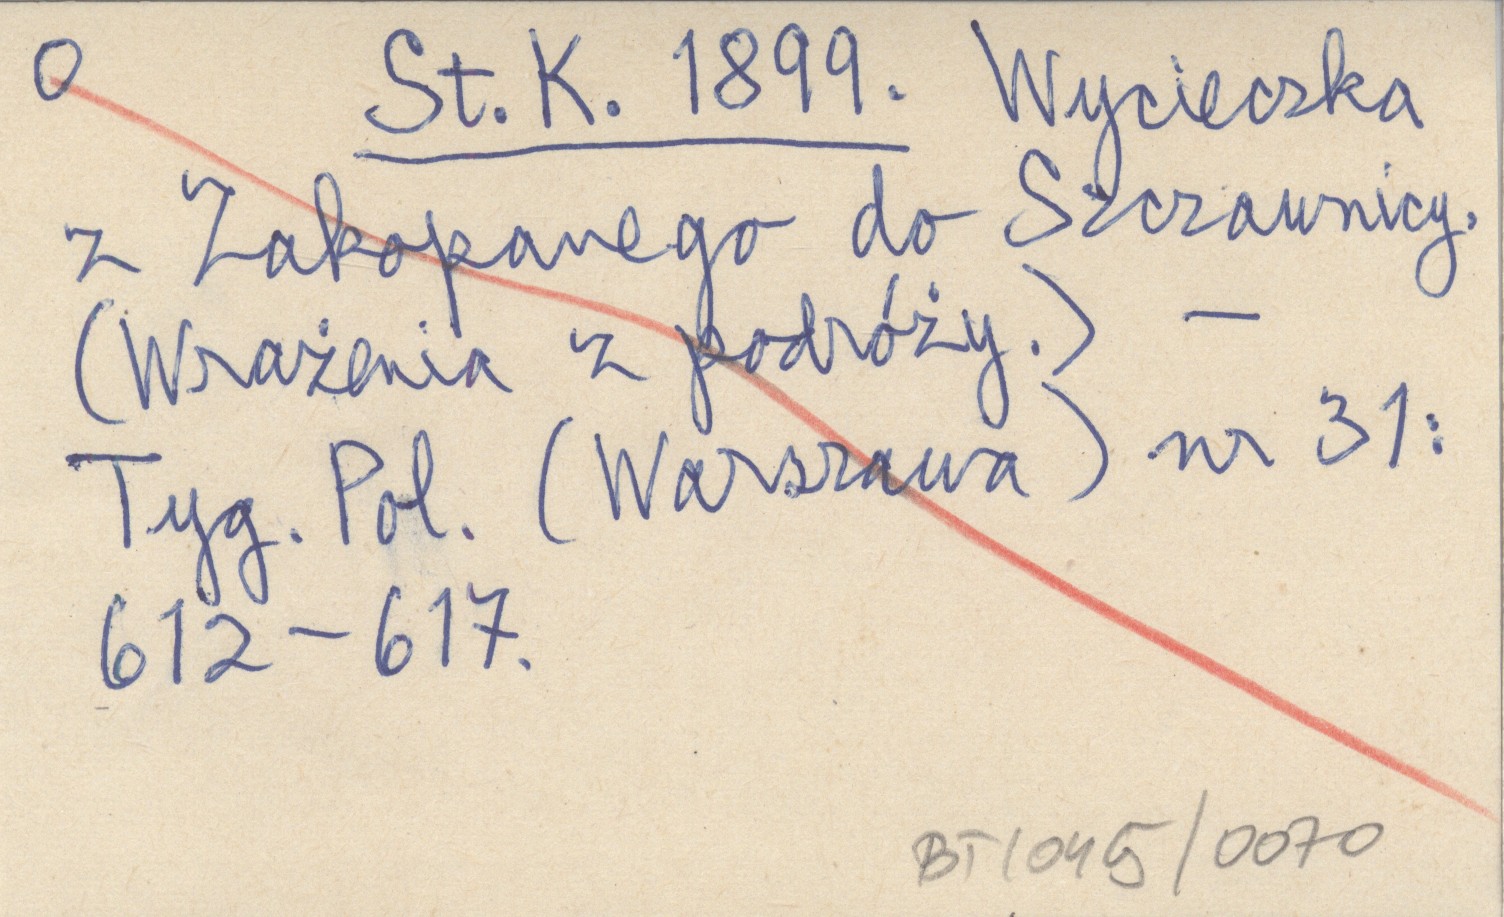 O St. K. 1899. Wycieczka
z Zakopanego do Szczawnicy.
(Wrażenia z podróży.) —
Tyg. Pol. (Warszawa) nr 31:
612–617.
BT/045/0070